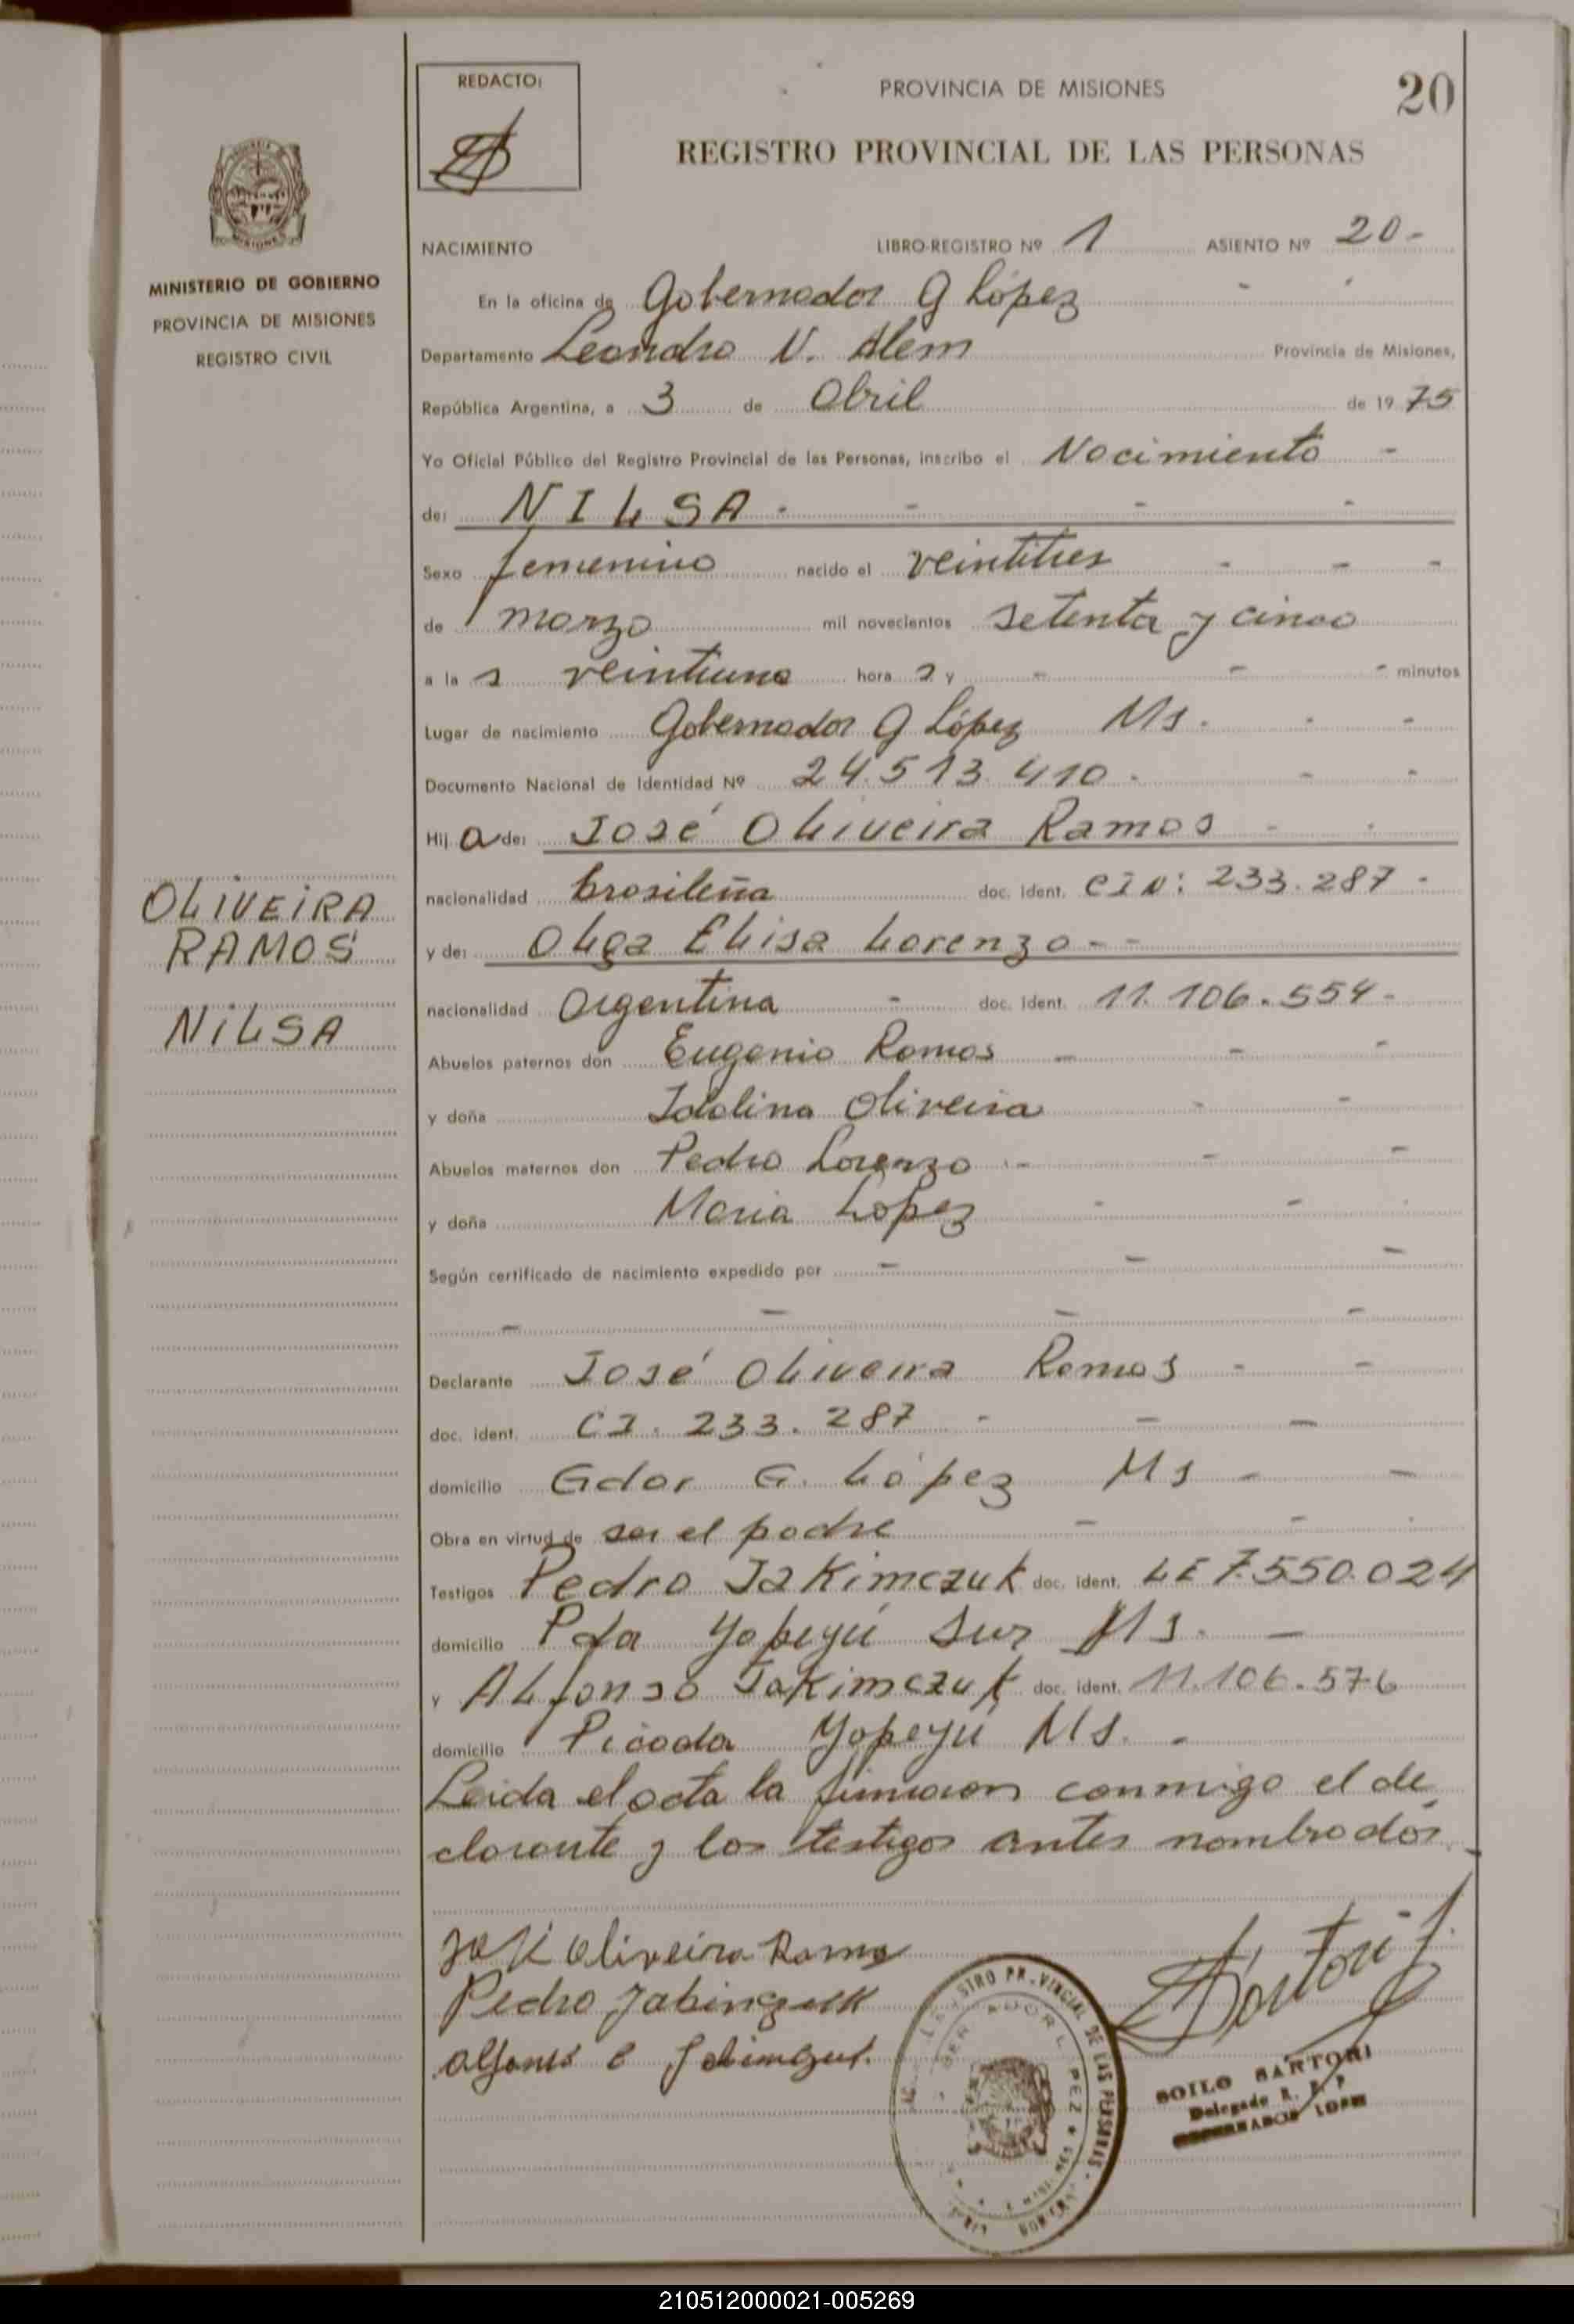 REDACTO:
PROVINCIA DE MISIONES
20
REGISTRO PROVINCIAL DE LAS PERSONAS
MINISTERIO DE GOBIERNO
PROVINCIA DE MISIONES
REGISTRO CIVIL
NACIMIENTO LIBRO-REGISTRO Nº 1 ASIENTO Nº 20-
En la oficina de Gobernador G López -
Departamento Leandro N. Alem Provincia de Misiones,
República Argentina, a 3 de Abril de 1975
Yo Oficial Público del Registro Provincial de las Personas, inscribo el Nacimiento -
de: NILSA - - - -
Sexo femenino nacido el veintitres - - -
de marzo mil novecientos setenta y cinco
a la s veintiuna hora s y - - - minutos
Lugar de nacimiento Gobernador G López Ms. - -
Documento Nacional de Identidad Nº 24.513.410 - - -
Hij a de: José Oliveira Ramos - -
nacionalidad brasileña doc. ident. CIN: 233.287 -
OLIVEIRA
RAMOS
NILSA
y de: Olga Elisa Lorenzo - -
nacionalidad Argentina - doc. ident. 11.106.554-
Abuelos paternos don Eugenio Ramos - - -
y doña Idolina Oliveira - -
Abuelos maternos don Pedro Lorenzo - - -
y doña Maria Lopez - -
Según certificado de nacimiento expedido por - - -
- - - -
Declarante José Oliveira Ramos - -
doc. ident. CI. 233.287 - - -
domicilio Gdor G. López Ms - -
Obra en virtud de ser el padre - -
Testigos Pedro Jakimczuk doc. ident. LE 7.550.024
domicilio Pda Yapeyú Sur Ms. -
y Alfonso Jakimczuk doc. ident. 11.106.576
domicilio Picada Yapeyú Ms. -
Leida el acta la firmaron conmigo el de
clarante y los testigos antes nombrados
José Oliveira Ramos
Pedro
Sartori
REGISTRO PROVINCIAL DE LAS PERSONAS
SOILO SARTORI
Delegado R. P. P
GOBERNADOR LOPEZ
210512000021-005269